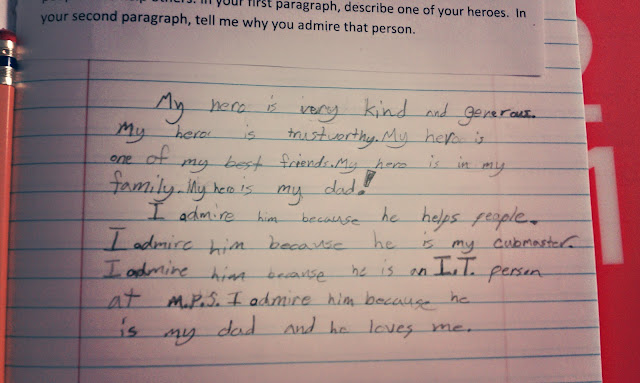 help others. In your first paragraph, describe one of your heroes. In
your second paragraph, tell me why you admire that person.
My hero is very kind and generous.
My hero is trustworthy. My hero is
one of my best friends. My hero is in my
family. My hero is my dad!
I admire him because he helps people.
I admire him because he is my cubmaster.
I admire him because he is an I.T. person
at M.P.S. I admire him because he
is my dad and he loves me.